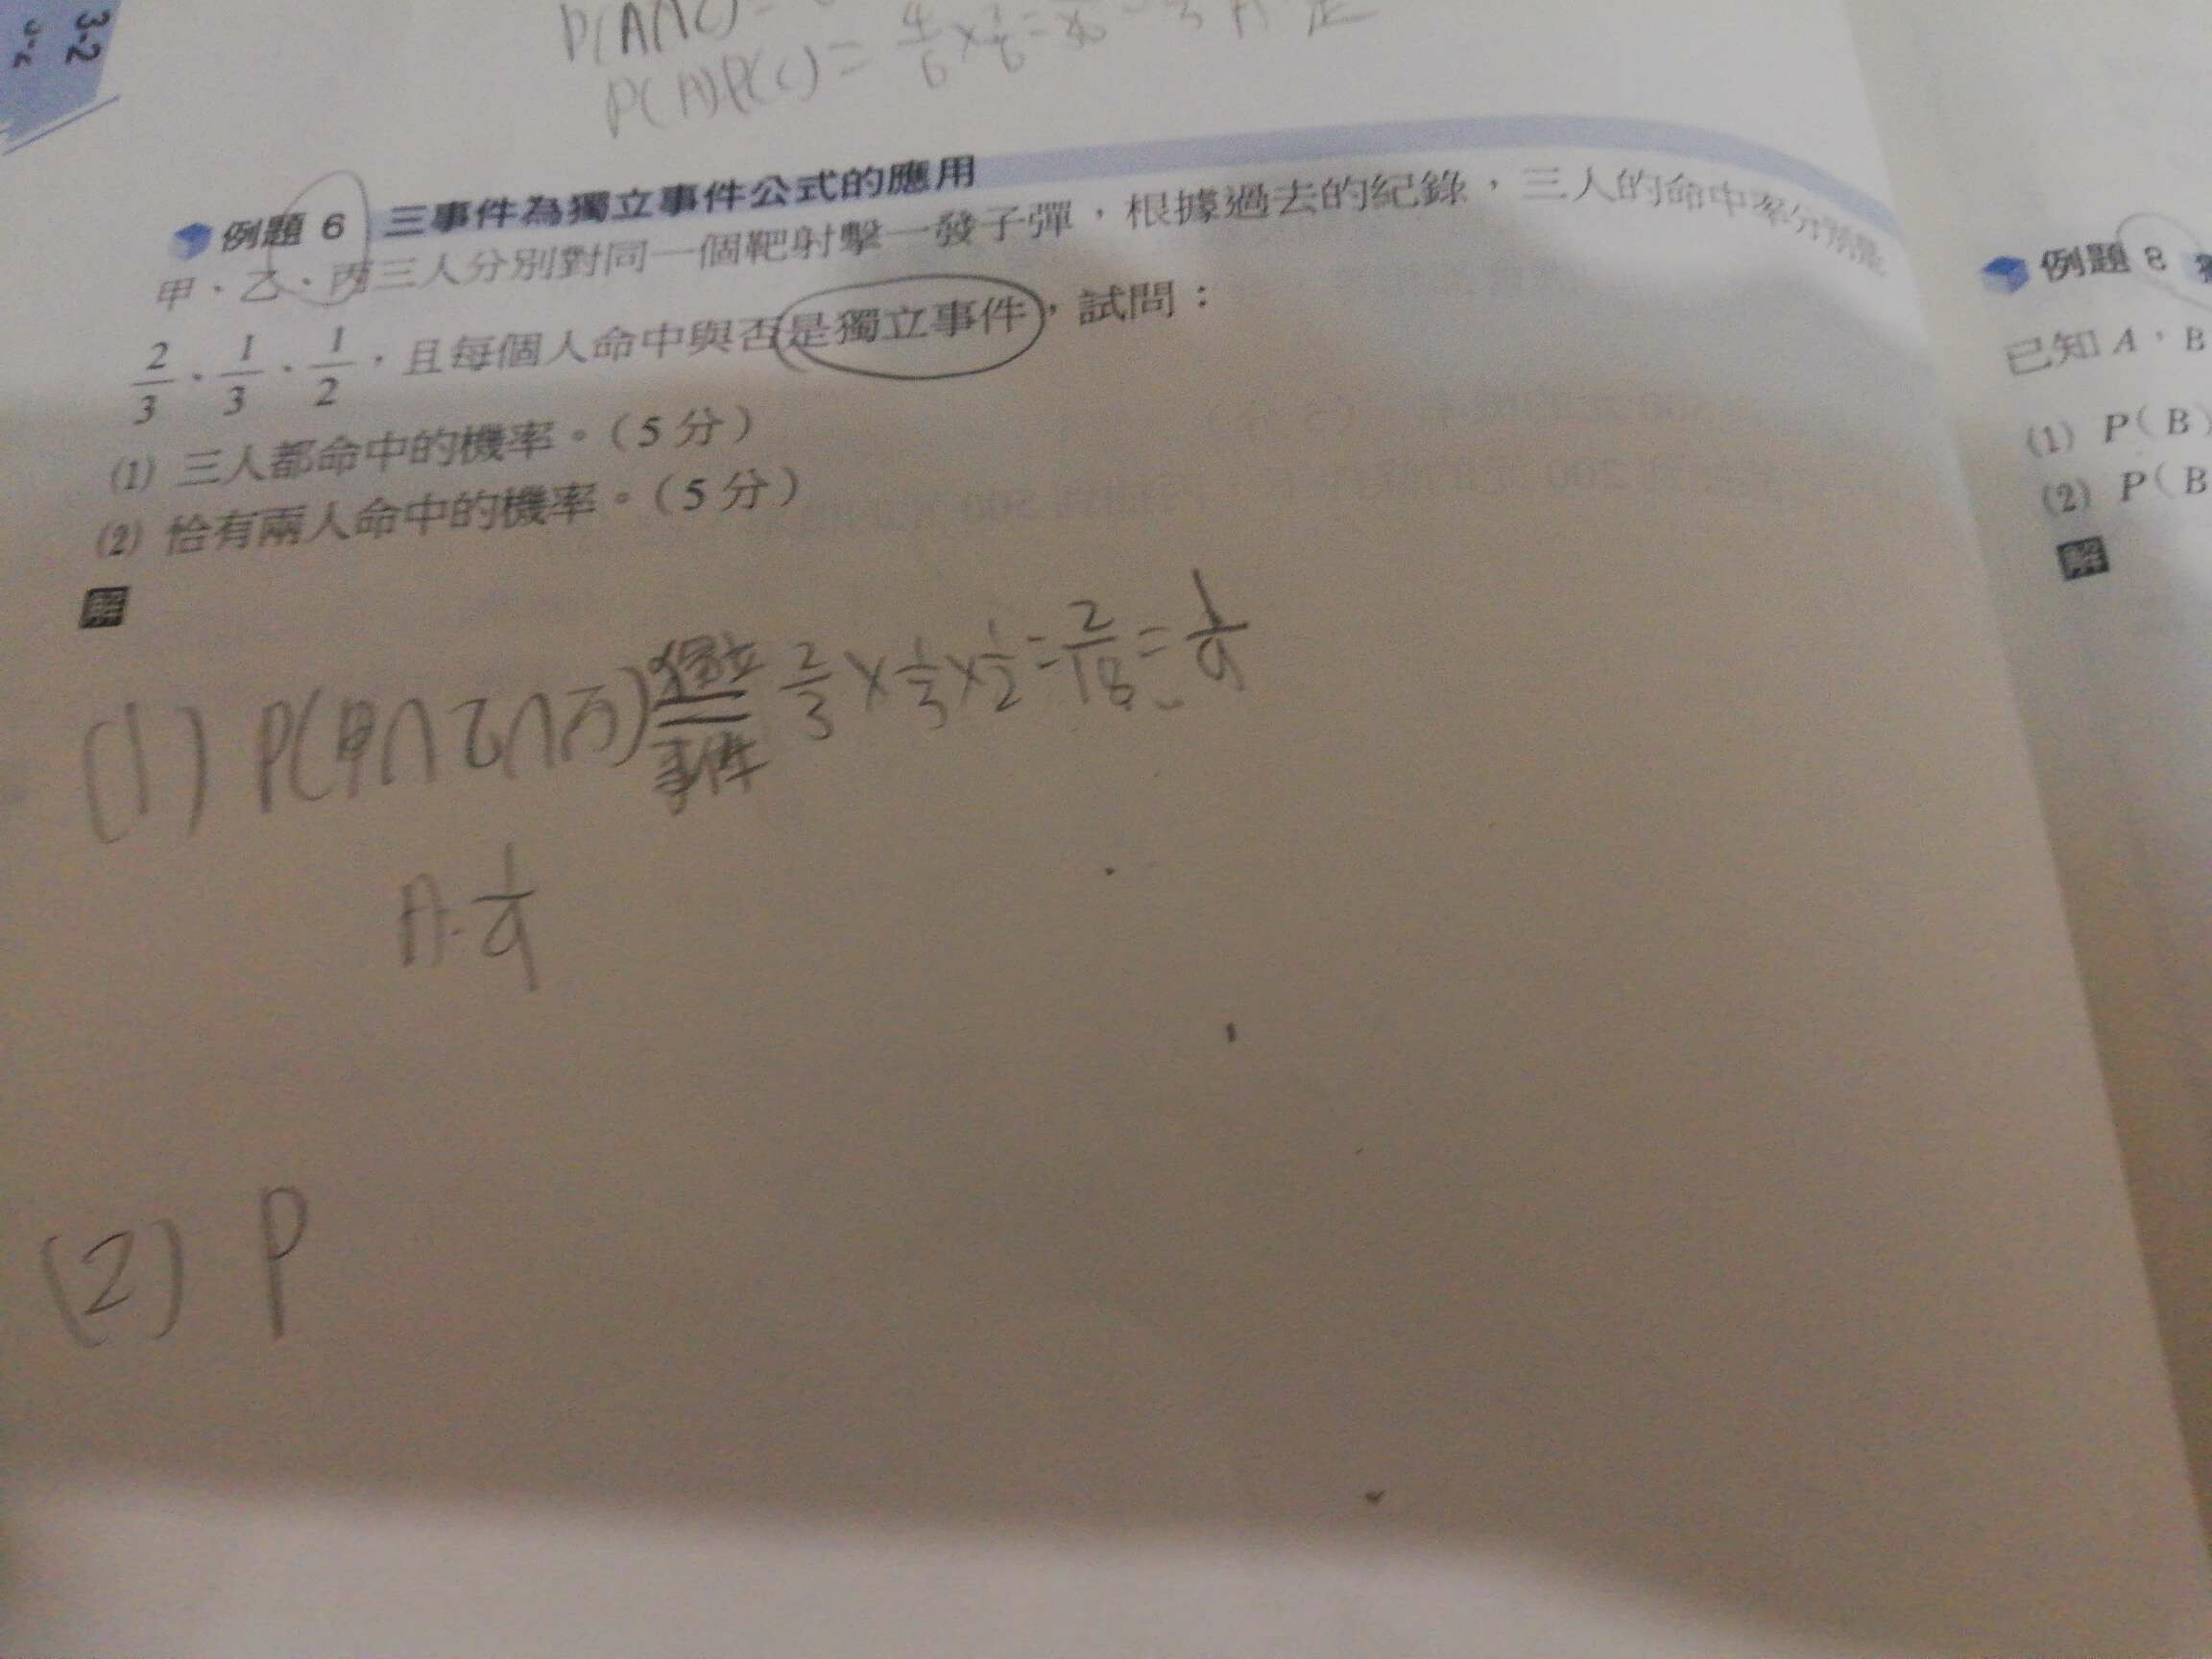 3-2
P(A∩C)=
P(A)P(C)=
例題 6 三事件為獨立事件公式的應用
甲、乙、丙三人分別對同一個靶射擊一發子彈，根據過去的紀錄，三人的命中率分別是
2/3、1/3、1/2，且每個人命中與否是獨立事件，試問：
(1) 三人都命中的機率。（5 分）
(2) 恰有兩人命中的機率。（5 分）
解
(1) P(甲∩乙∩丙) 獨立事件= 2/3 × 1/3 × 1/2 = 2/18 = 1/9
A. 1/9
(2) P
例題 8
已知 A，B
(1) P(B)
(2) P(B
解